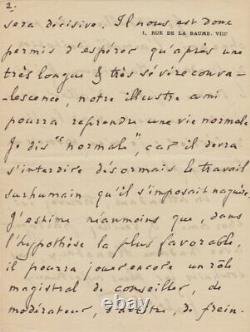 2.
sera décisive. Il nous est donc
1, RUE DE LA BAUME. VIIIe
permis d'espérer qu'après une
très longue & très sévère conva-
lescence, notre illustre ami
pourra reprendre une vie normale
Je dis "normale", car il devra
s'interdire désormais le travail
surhumain qu'il s'imposait naguère.
J'estime néanmoins que, dans
l'hypothèse la plus favorable,
il pourra jouer encore un rôle
magistral de conseiller, de
modérateur, d'arbitre, de frein.